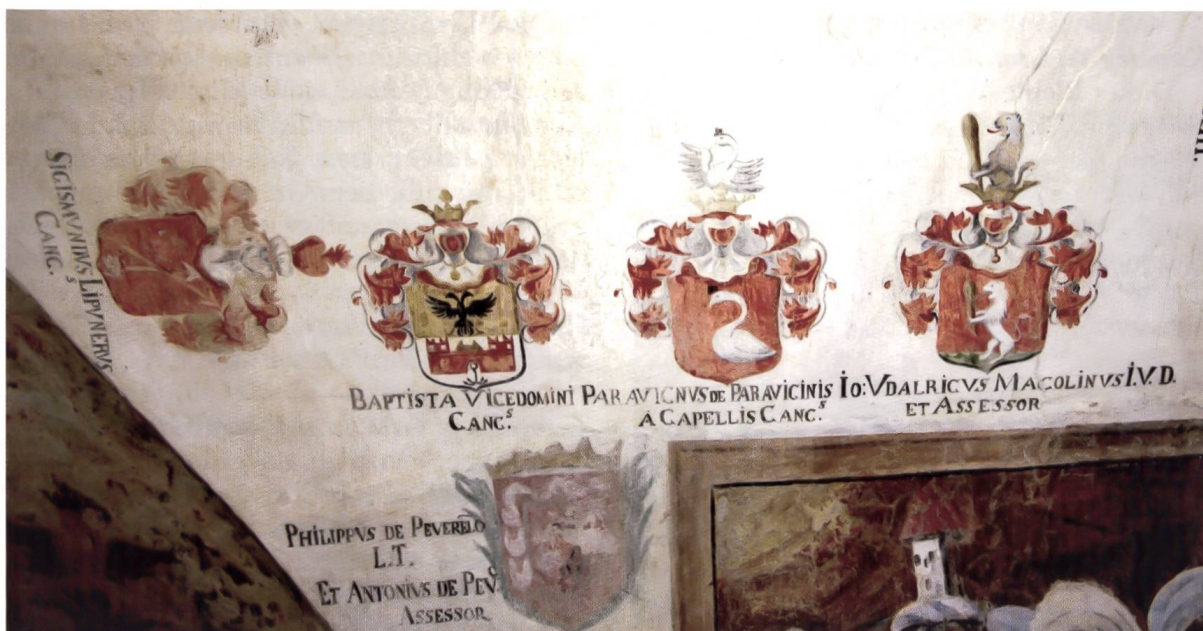 SIGISMVNDVS LIPVNERVS
CANC.s
BAPTISTA VICEDOMINI
CANC.s
PARAVICNVS DE PARAVICINIS
A CAPELLIS CANC.s
IO: VDALRICVS MACOLINVS I.V.D.
ET ASSESSOR
PHILIPPVS DE PEVERELO
L.T.
ET ANTONIVS DE PEV.
ASSESSOR